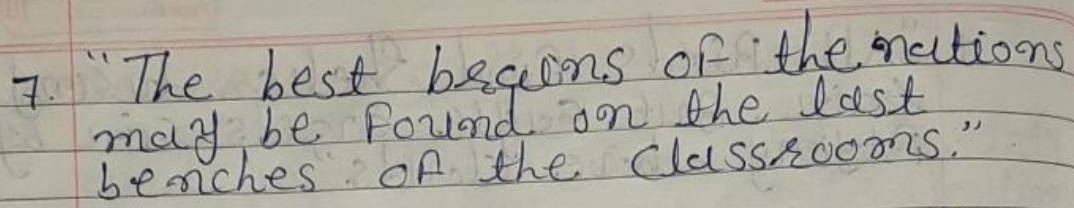 7. "The best brains of the nations
may be found on the last
benches of the classrooms."